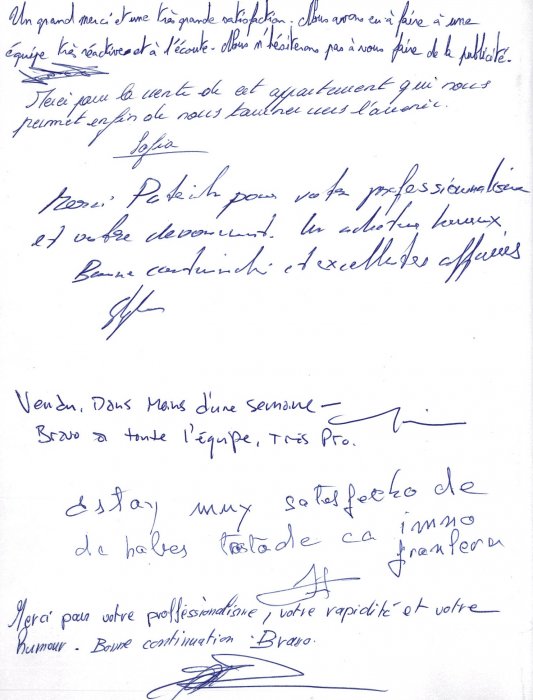 Un grand merci et une très grande satisfaction. Nous avons eu à faire à une
équipe très réactive et à l'écoute. Nous n'hésiterons pas à vous faire de la publicité.
Merci pour la vente de cet appartement qui nous
permet enfin de nous tourner vers l'avenir.
Sofia
Merci Patrick pour votre professionnalisme
et votre dévouement. Un acheteur heureux
Bonne continuité et excellentes affaires
Vendu, Dans Moins d'une semaine -
Bravo a toute l'équipe, Très Pro.
Estay muy satesfecho de
de haber tratade ca immo
Merci pour votre proffessionalisme, votre rapidité et votre
humour. Bonne continuation. Bravo.